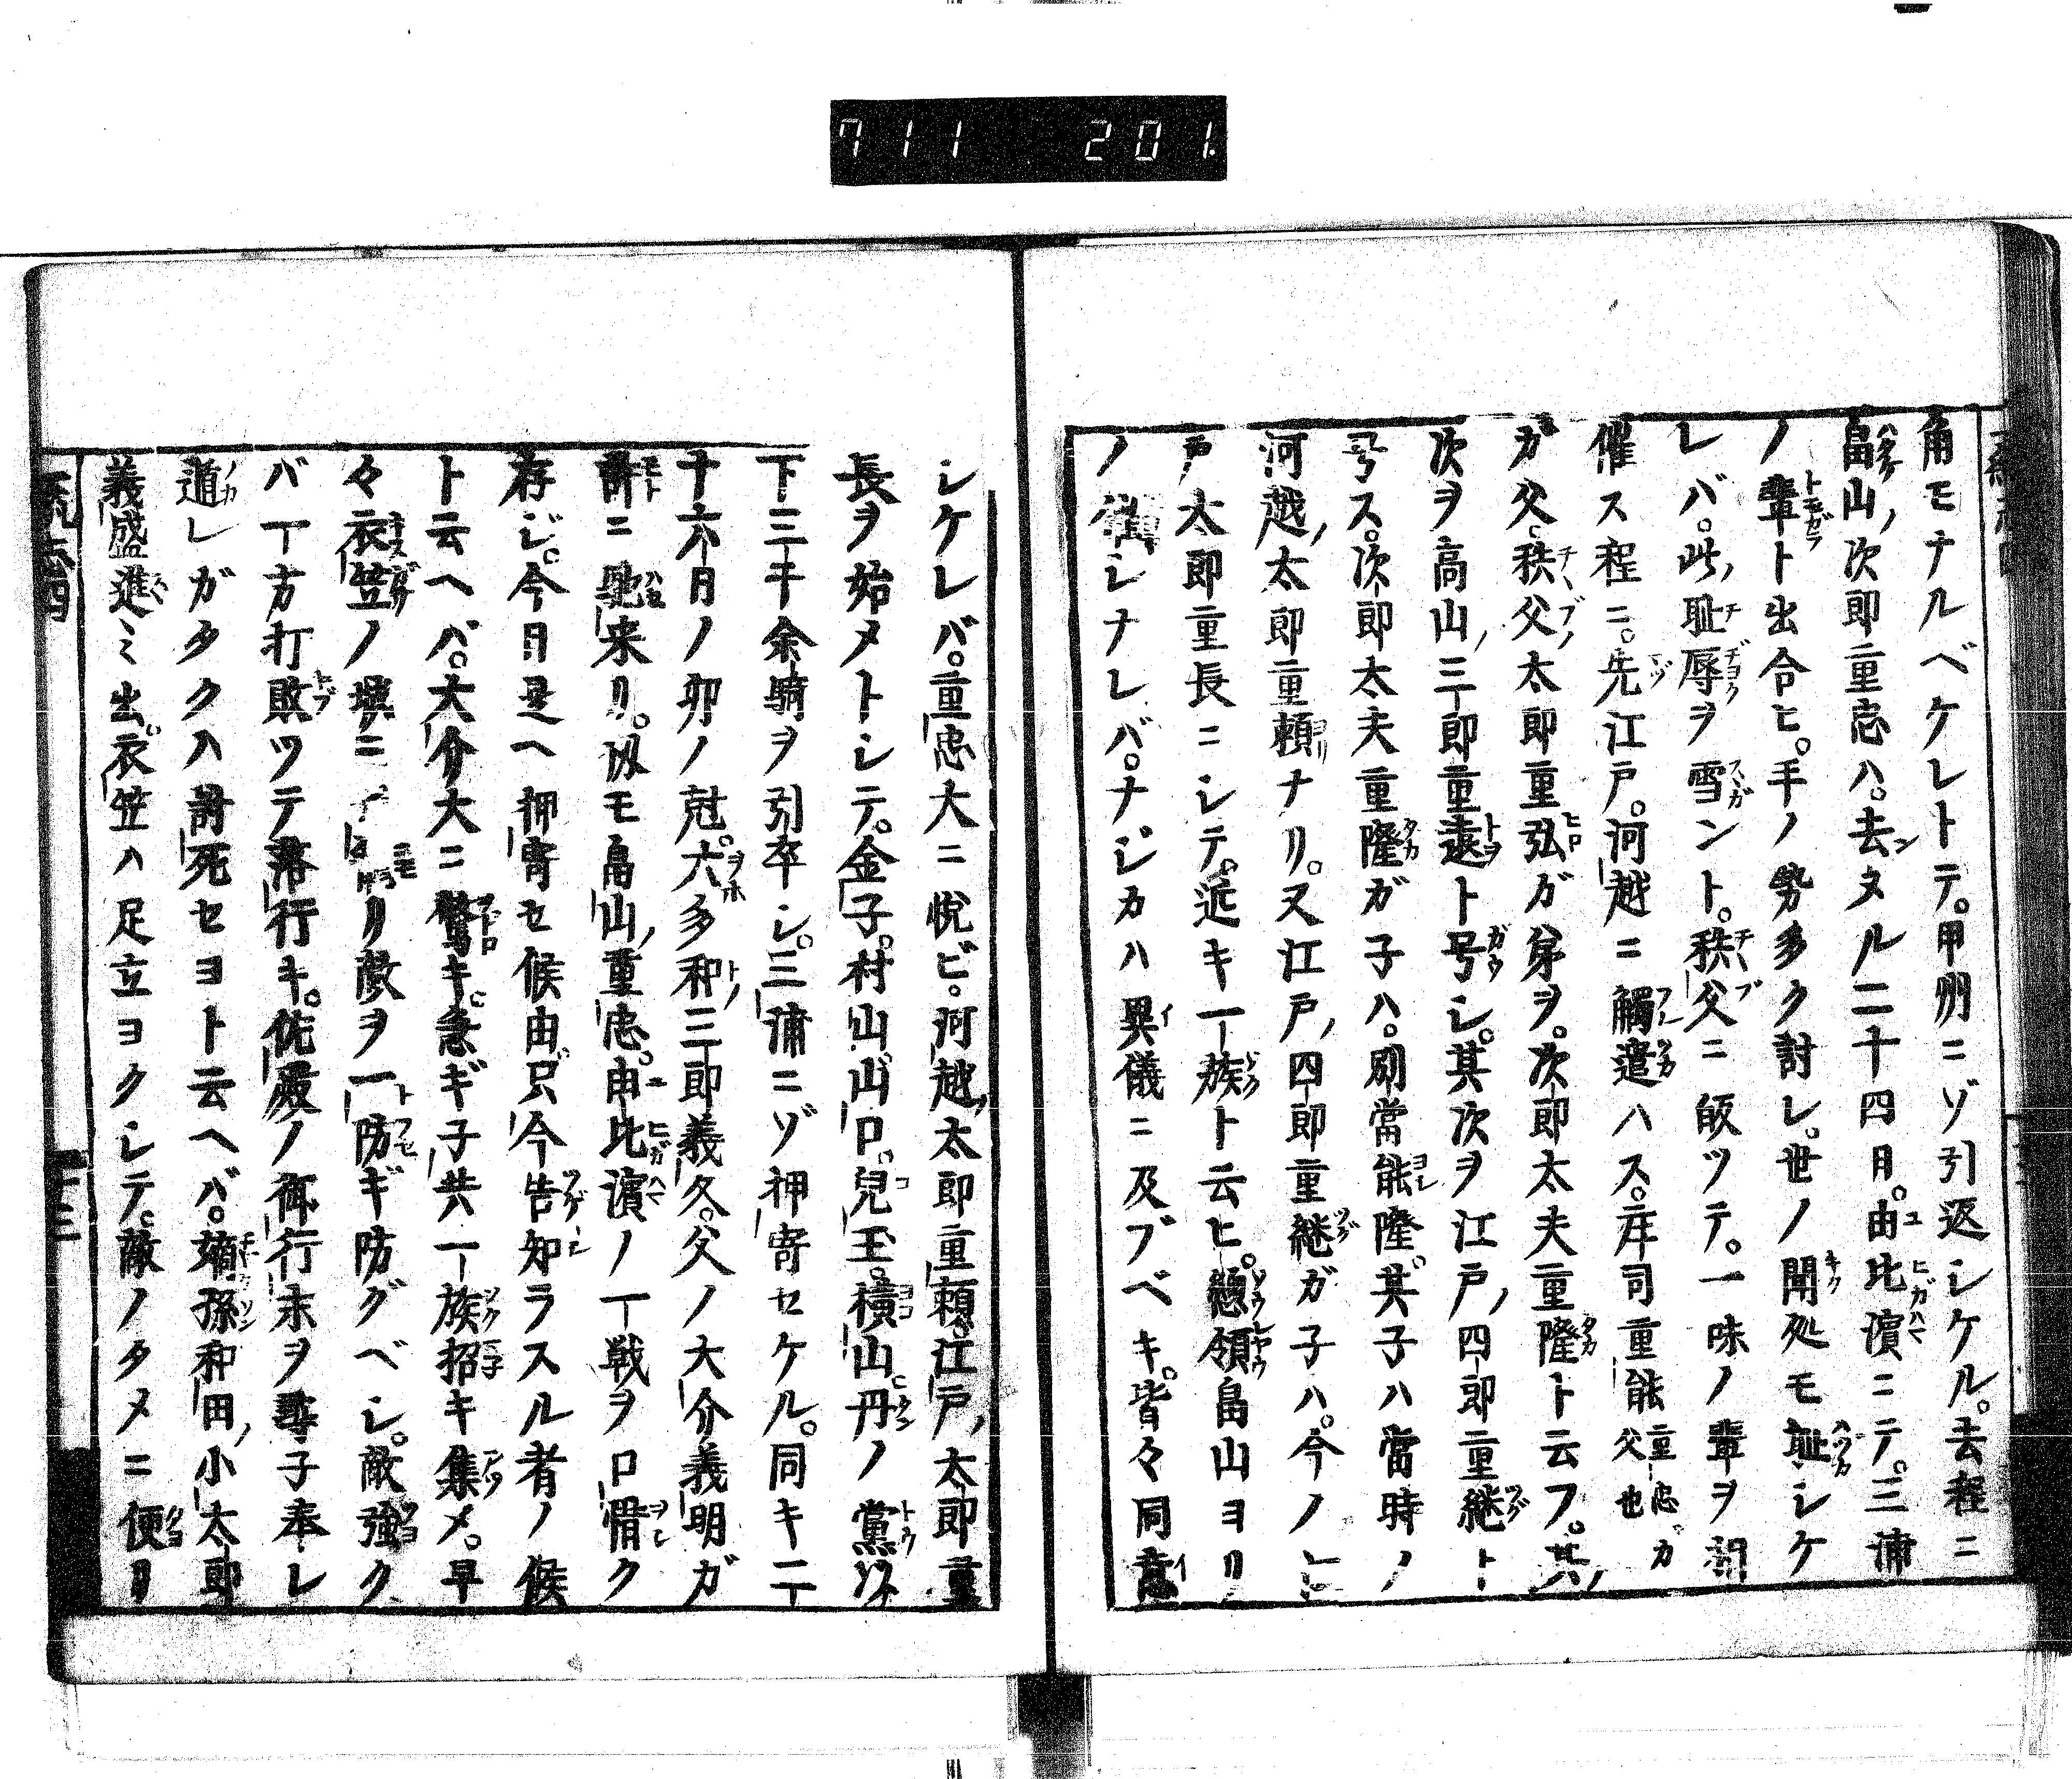 711 201.
角モナルベケレトテ。甲州ニゾ引返シケル。去程ニ
畠山ノ次郎重忠ハ。去ンヌル二十四日。由比濱ニテ。三浦
ノ輩ト出合ヒ。手ノ勢多ク討レ。世ノ聞処モ耻シケ
レバ。此ノ耻辱ヲ雪ガント。秩父ニ皈ツテ。一味ノ輩ヲ招
催ス程ニ。先江戸。河越ニ觸遣ハス。庄司重能重忠ガ父也
ガ父。秩父ノ太郎重弘ガ弟ヲ。次郎太夫重隆ト云フ。其ノ
次ヲ高山ノ三郎重遠ト号シ。其次ヲ江戸ノ四郎重継ト
号ス。次郎太夫重隆ガ子ハ。別當能隆。其子ハ當時ノ
河越ノ太郎重頼ナリ。又江戸ノ四郎重継ガ子ハ。今ノ江
戸太郎重長ニシテ。近キ一族ト云ヒ。總領畠山ヨリ
ノシナレバ。ナジカハ異儀ニ及ブベキ。皆々同意
シケレバ。重忠大ニ悦ビ。河越ノ太郎重頼。江戸ノ太郎重
長ヲ始メトシテ。金子。村山。山口。兒玉。横山。丹ノ黨以
下三千余騎ヲ引卒シ。三浦ニゾ押寄セケル。同キ二
十六日ノ卯ノ尅。大多和ノ三郎義久。父ノ大介義明ガ
許ニ馳来リ。以モ畠山ノ重忠。由比濱ノ一戦ヲ口惜ク
存ジ。今日是ヘ押寄セ候由。只今告知ラスル者ノ候
ト云ヘバ。大介大ニ驚キ。急ギ子共一族招キ集メ。早
々衣笠ノ城ニリ敵ヲ一防ギ防グベシ。敵強ク
バ一方打敗ツテ落行キ。佐殿ノ御行末ヲ尋子奉レ
遁レガタクハ討死セヨト云ヘバ。嫡孫和田ノ小太郎
義盛進ミ出。衣笠ハ足立ヨクシテ。敵ノタメニ便リ